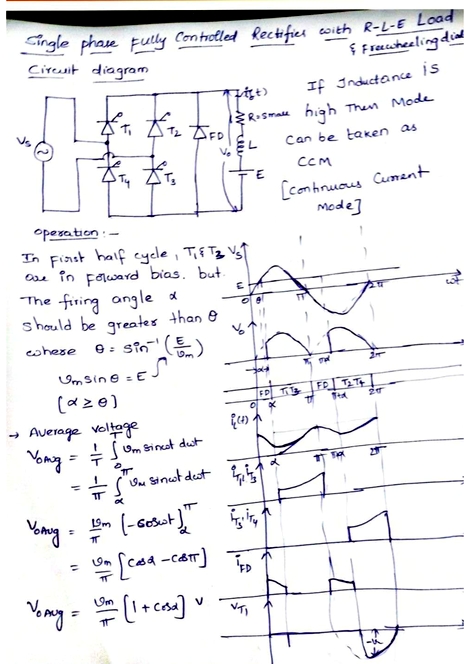 Single phase Fully Controlled Rectifier with R-L-E Load
& Freewheeling diod
Circuit diagram
i₀(t)
R=small
L
E
Vs
T₁
T₂
FD
V₀
T₄
T₃
If Inductance is
high Then Mode
can be taken as
CCM
[Continuous Current
Mode]
operation:-
In First half cycle, T₁ & T₃
are in Forward bias. but
The firing angle α
should be greater than θ
where θ = sin⁻¹ (E/Vm)
Vm sinθ = E
[α ≥ θ]
→ Average voltage
V₀Avg = 1/T ∫₀ᵀ Vm sinωt dωt
= 1/π ∫α^π Vm sinωt dωt
V₀Avg = Vm/π [-cosωt]α^π
= Vm/π [cosα - cosπ]
V₀Avg = Vm/π [1 + cosα] V
Vs
E
0 θ π 2π ωt
V₀
α π π+α 2π
FD T₁T₃ FD T₂T₄
0 α π π+α 2π
i₀(t)
α π π+α 2π
iT₁, iT₃
iT₃, iT₄
iFD
VT₁